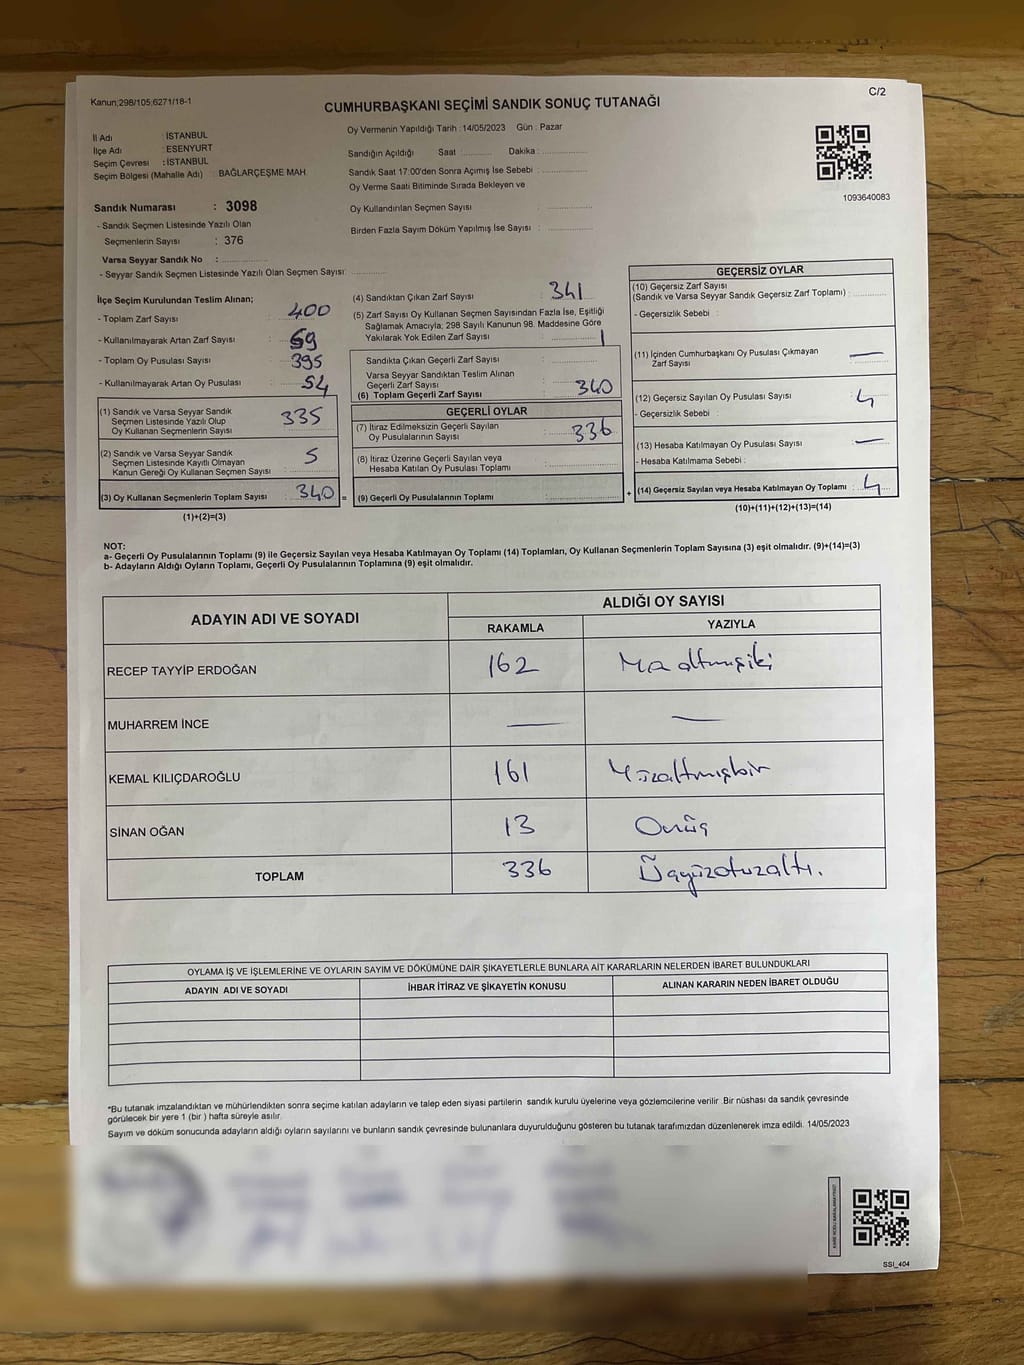 Kanun;298/105;6271/18-1
C/2
CUMHURBAŞKANI SEÇİMİ SANDIK SONUÇ TUTANAĞI
İl Adı : İSTANBUL
İlçe Adı : ESENYURT
Seçim Çevresi : İSTANBUL
Seçim Bölgesi (Mahalle Adı) : BAĞLARÇEŞME MAH.
Sandık Numarası : 3098
- Sandık Seçmen Listesinde Yazılı Olan
Seçmenlerin Sayısı : 376
Varsa Seyyar Sandık No :
- Seyyar Sandık Seçmen Listesinde Yazılı Olan Seçmen Sayısı:
Oy Vermenin Yapıldığı Tarih : 14/05/2023 Gün : Pazar
Sandığın Açıldığı Saat Dakika :
Sandık Saat 17:00'den Sonra Açımış İse Sebebi :
Oy Verme Saati Bitiminde Sırada Bekleyen ve
Oy Kullandırılan Seçmen Sayısı :
Birden Fazla Sayım Döküm Yapılmış İse Sayısı :
1093640083
İlçe Seçim Kurulundan Teslim Alınan;
- Toplam Zarf Sayısı : 400
- Kullanılmayarak Artan Zarf Sayısı : 59
- Toplam Oy Pusulası Sayısı : 395
- Kullanılmayarak Artan Oy Pusulası : 54
(1) Sandık ve Varsa Seyyar Sandık
Seçmen Listesinde Yazılı Olup
Oy Kullanan Seçmenlerin Sayısı : 335
(2) Sandık ve Varsa Seyyar Sandık
Seçmen Listesinde Kayıtlı Olmayan
Kanun Gereği Oy Kullanan Seçmen Sayısı : 5
(3) Oy Kullanan Seçmenlerin Toplam Sayısı : 340 =
(1)+(2)=(3)
(4) Sandıktan Çıkan Zarf Sayısı : 341
(5) Zarf Sayısı Oy Kullanan Seçmen Sayısından Fazla İse, Eşitliği
Sağlamak Amacıyla; 298 Sayılı Kanunun 98. Maddesine Göre
Yakılarak Yok Edilen Zarf Sayısı : 1
Sandıkta Çıkan Geçerli Zarf Sayısı :
Varsa Seyyar Sandıktan Teslim Alınan
Geçerli Zarf Sayısı :
(6) Toplam Geçerli Zarf Sayısı : 340
GEÇERLİ OYLAR
(7) İtiraz Edilmeksizin Geçerli Sayılan
Oy Pusulalarının Sayısı : 336
(8) İtiraz Üzerine Geçerli Sayılan veya
Hesaba Katılan Oy Pusulası Toplamı :
(9) Geçerli Oy Pusulalarının Toplamı : +
GEÇERSİZ OYLAR
(10) Geçersiz Zarf Sayısı
(Sandık ve Varsa Seyyar Sandık Geçersiz Zarf Toplamı) :
- Geçersizlik Sebebi :
(11) İçinden Cumhurbaşkanı Oy Pusulası Çıkmayan
Zarf Sayısı : —
(12) Geçersiz Sayılan Oy Pusulası Sayısı : 4
- Geçersizlik Sebebi :
(13) Hesaba Katılmayan Oy Pusulası Sayısı : —
- Hesaba Katılmama Sebebi :
(14) Geçersiz Sayılan veya Hesaba Katılmayan Oy Toplamı : 4
(10)+(11)+(12)+(13)=(14)
NOT:
a- Geçerli Oy Pusulalarının Toplamı (9) ile Geçersiz Sayılan veya Hesaba Katılmayan Oy Toplamı (14) Toplamları, Oy Kullanan Seçmenlerin Toplam Sayısına (3) eşit olmalıdır. (9)+(14)=(3)
b- Adayların Aldığı Oyların Toplamı, Geçerli Oy Pusulalarının Toplamına (9) eşit olmalıdır.
ADAYIN ADI VE SOYADI
ALDIĞI OY SAYISI
RAKAMLA YAZIYLA
RECEP TAYYİP ERDOĞAN 162 altmışiki
MUHARREM İNCE — —
KEMAL KILIÇDAROĞLU 161 Yüzaltmışbir
SİNAN OĞAN 13 Onüç
TOPLAM 336 Üçyüzotuzaltı.
OYLAMA İŞ VE İŞLEMLERİNE VE OYLARIN SAYIM VE DÖKÜMÜNE DAİR ŞİKAYETLERLE BUNLARA AİT KARARLARIN NELERDEN İBARET BULUNDUKLARI
ADAYIN ADI VE SOYADI İHBAR İTİRAZ VE ŞİKAYETİN KONUSU ALINAN KARARIN NEDEN İBARET OLDUĞU
*Bu tutanak imzalandıktan ve mühürlendikten sonra seçime katılan adayların ve talep eden siyasi partilerin sandık kurulu üyelerine veya gözlemcilerine verilir. Bir nüshası da sandık çevresinde
görülecek bir yere 1 (bir ) hafta süreyle asılır.
Sayım ve döküm sonucunda adayların aldığı oyların sayılarını ve bunların sandık çevresinde bulunanlara duyurulduğunu gösteren bu tutanak tarafımızdan düzenlenerek imza edildi. 14/05/2023
SSI_404